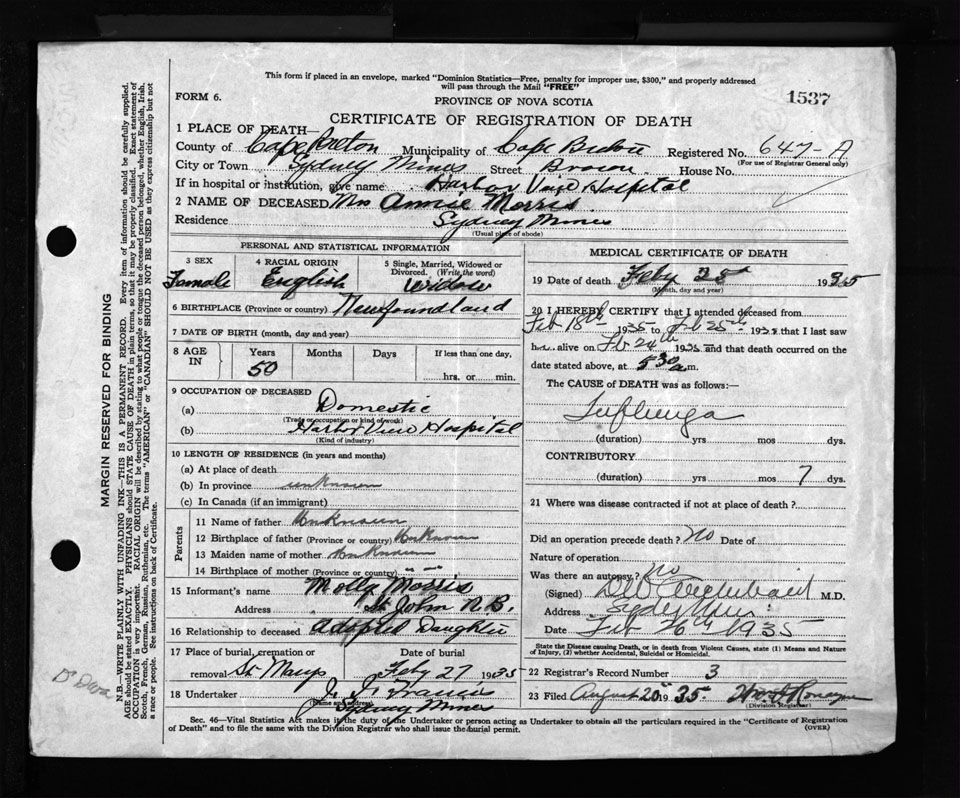 This form if placed in an envelope, marked "Dominion Statistics—Free, penalty for improper use, $300," and properly addressed
will pass through the Mail "FREE"
FORM 6.
PROVINCE OF NOVA SCOTIA
1537
CERTIFICATE OF REGISTRATION OF DEATH
1 PLACE OF DEATH—
County of Cape Breton Municipality of Cape Breton Registered No. 647-A
(For use of Registrar General only)
City or Town Sydney Mines Street Brown House No.
If in hospital or institution, give name Harbor View Hospital
2 NAME OF DECEASED Mrs Annie Morris
Residence Sydney Mines
(Usual place of abode)
PERSONAL AND STATISTICAL INFORMATION
3 SEX 4 RACIAL ORIGIN 5 Single, Married, Widowed or
Divorced. (Write the word)
Female English Widow
6 BIRTHPLACE (Province or country) Newfoundland
7 DATE OF BIRTH (month, day and year)
8 AGE IN Years Months Days If less than one day,
50 hrs. or min.
9 OCCUPATION OF DECEASED
(a) Domestic
(Trade or occupation or kind of work)
(b) Harbor View Hospital
(Kind of industry)
10 LENGTH OF RESIDENCE (in years and months)
(a) At place of death
(b) In province unknown
(c) In Canada (if an immigrant)
Parents
11 Name of father Unknown
12 Birthplace of father (Province or country) Unknown
13 Maiden name of mother Unknown
14 Birthplace of mother (Province or country) " — "
15 Informant's name Molly Morris
Address St. John N.B.
16 Relationship to deceased Adopted Daughter
17 Place of burial, cremation or Date of burial
removal St Marys Feby 27 1935
18 Undertaker J. J. Francis
(Name and address)
Sydney Mines
MEDICAL CERTIFICATE OF DEATH
19 Date of death Feby 25 1935
(Month, day and year)
20 I HEREBY CERTIFY that I attended deceased from
Feb 18th 1935 to Feb 25th 1935 that I last saw
h alive on Feb 24th 1935 and that death occurred on the
date stated above, at 5 30 a.m.
The CAUSE of DEATH was as follows:
Influenza
(duration) yrs mos dys.
CONTRIBUTORY
(duration) yrs mos 7 dys.
21 Where was disease contracted if not at place of death?
Did an operation precede death? no Date of
Nature of operation
Was there an autopsy? no
(Signed) Archibald M.D.
Address Sydney Mines
Date Feb 26th 1935
State the Disease causing Death, or in death from Violent Causes, state (1) Means and
Nature of Injury, (2) whether Accidental, Suicidal or Homicidal.
22 Registrar's Record Number 3
23 Filed August 20 1935.
(Division Registrar)
Sec. 46—Vital Statistics Act makes it the duty of the Undertaker or person acting as Undertaker to obtain all the particulars required in the "Certificate of Registration
of Death" and to file the same with the Division Registrar who shall issue the burial permit.
(OVER)
MARGIN RESERVED FOR BINDING
N.B.—WRITE PLAINLY WITH UNFADING INK—THIS IS A PERMANENT RECORD. Every item of information should be carefully supplied.
AGE should be stated EXACTLY. PHYSICIANS should STATE CAUSE OF DEATH in plain terms, so that it may be properly classified. Exact statement of
OCCUPATION is very important. RACIAL ORIGIN will be described by stating to what people or tongue the deceased person belonged, whether English, Irish,
Scotch, French, German, Russian, Ruthenian, etc. The terms "AMERICAN" or "CANADIAN" SHOULD NOT BE USED as they express citizenship but not
a race or people. See instructions on back of Certificate.